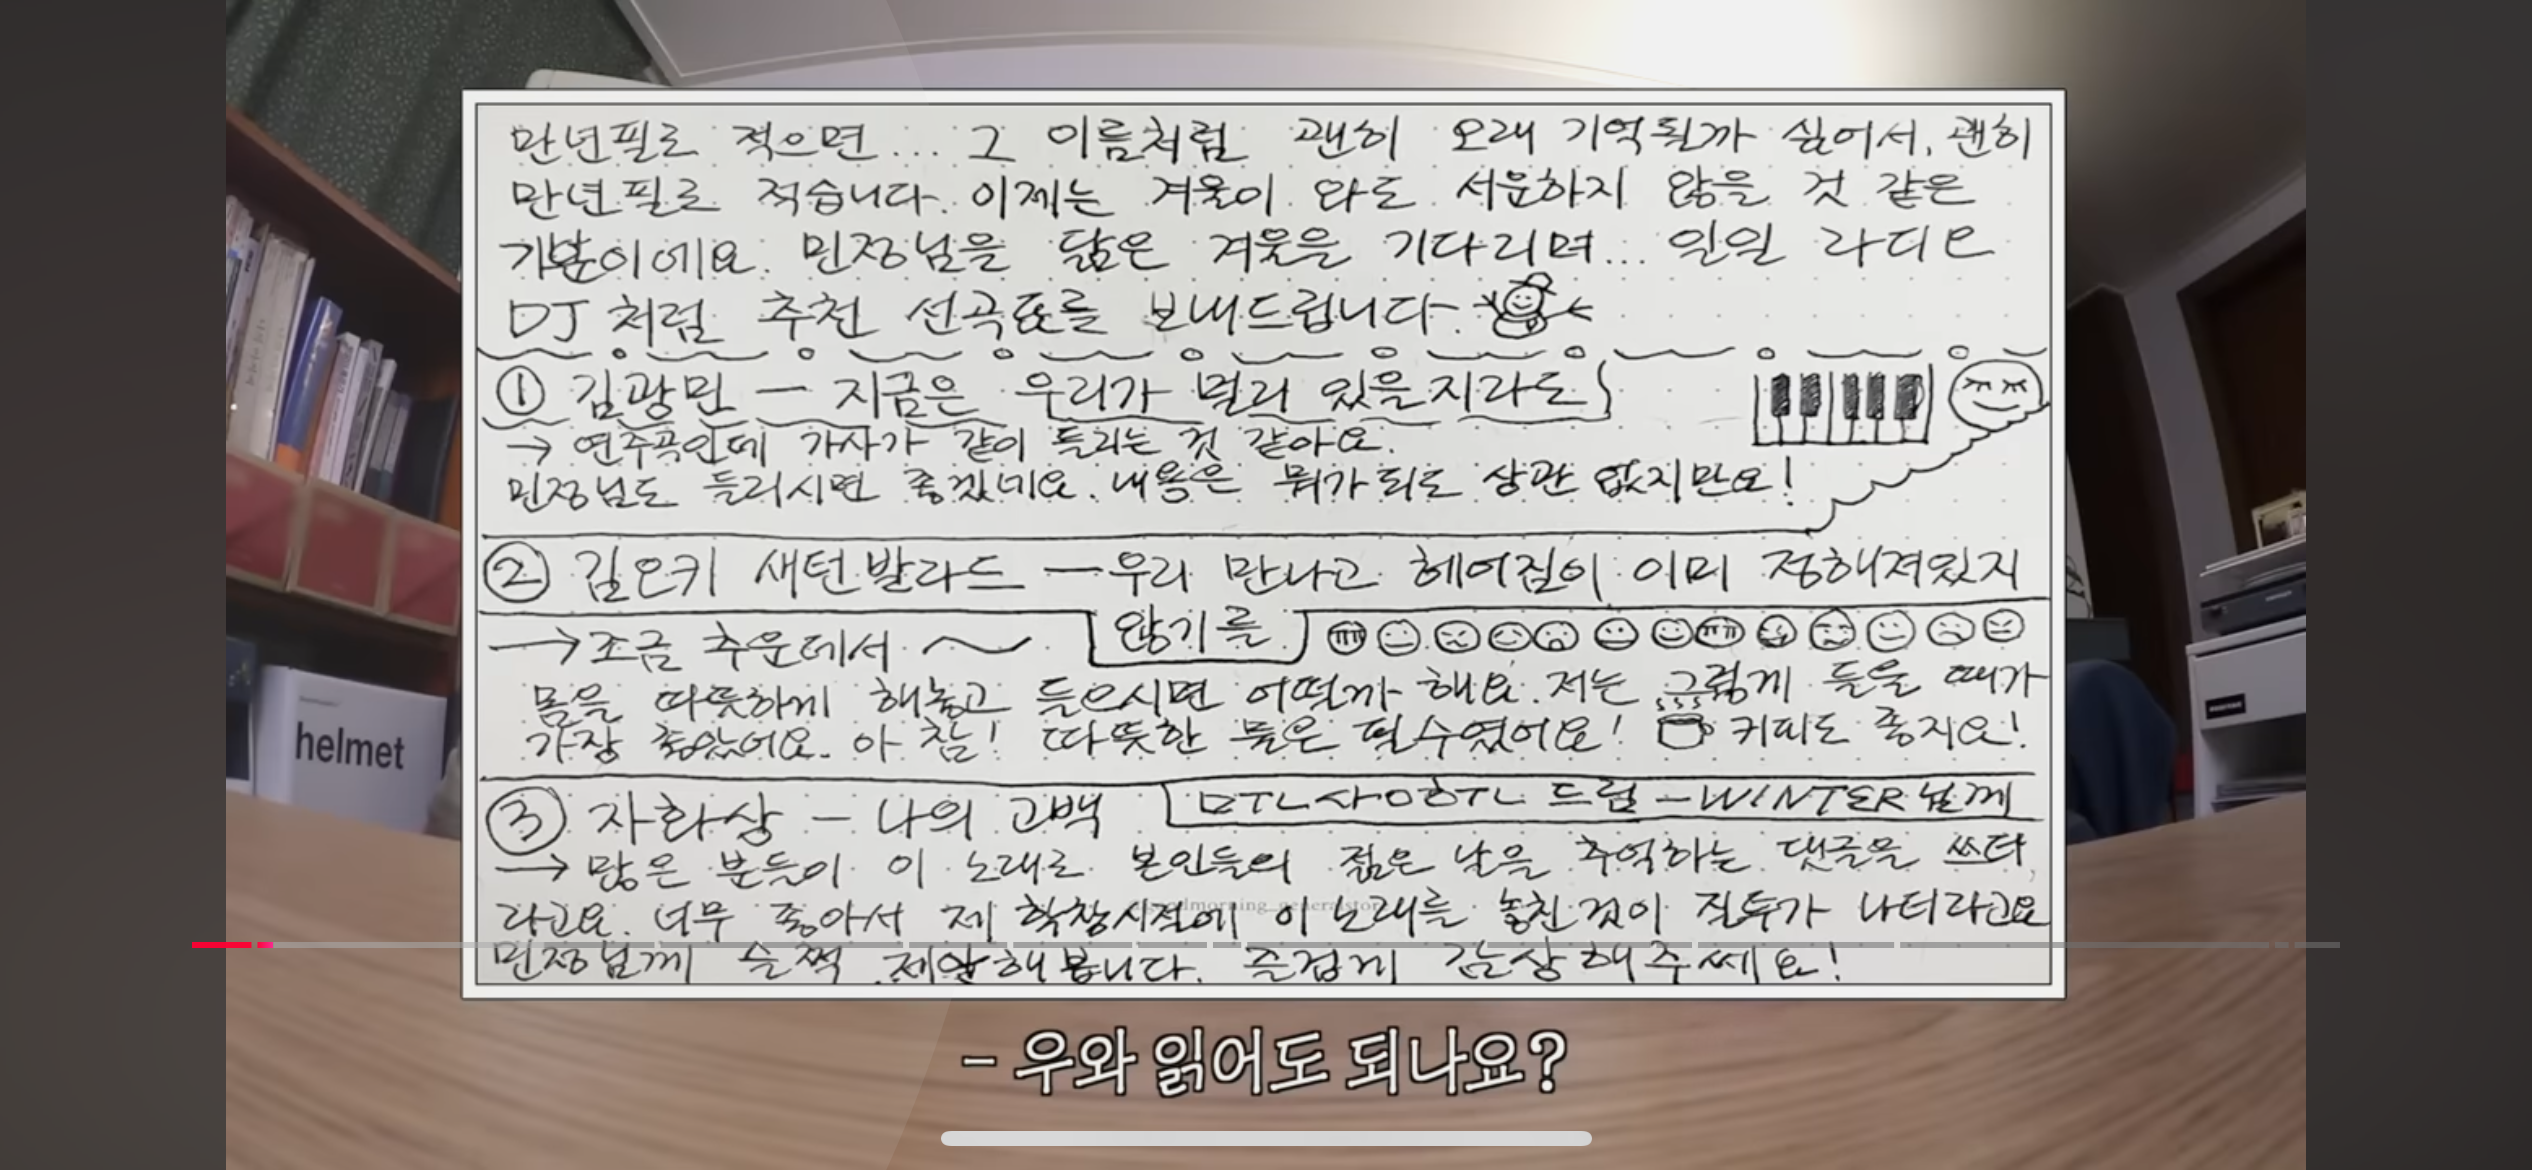 만년필로 적으면... 그 이름처럼 괜히 오래 기억될까 싶어서, 괜히
만년필로 적습니다. 이제는 겨울이 와도 서운하지 않을 것 같은
기분이에요. 민정님을 닮은 겨울을 기다리며... 일일 라디오
DJ처럼 추천 선곡표를 보내드립니다.
① 김광민 — 지금은 우리가 멀리 있을지라도
→ 연주곡인데 가사가 같이 들리는 것 같아요.
민정님도 들리시면 좋겠네요. 내용은 뭐가 되도 상관 없지만요!
② 김오키 새턴발라드 — 우리 만나고 헤어짐이 이미 정해져있지
않기를
→ 조금 추운데서 ~
몸을 따뜻하게 해놓고 들으시면 어떨까 해요. 저는 그렇게 들을 때가
가장 좋았어요. 아 참! 따뜻한 물은 필수였어요! 커피도 좋지요!
③ 자화상 — 나의 고백
드림 - WINTER님께
→ 많은 분들이 이 노래로 본인들의 젊은 날을 추억하는 댓글을 쓰더
라고요. 너무 좋아서 제 학창시절에 이 노래를 놓친 것이 질투가 나더라고요
민정님께 슬쩍 제안해 봅니다. 즐겁게 감상해주쎄요!
goodmorning_generalstore
helmet
- 우와 읽어도 되나요?